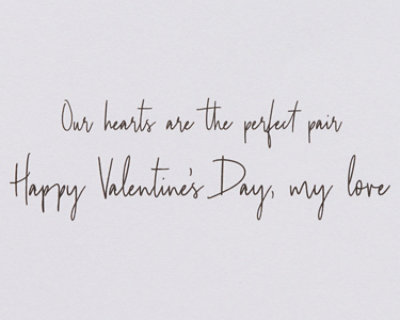 Our hearts are the perfect pair
Happy Valentine's Day, my love